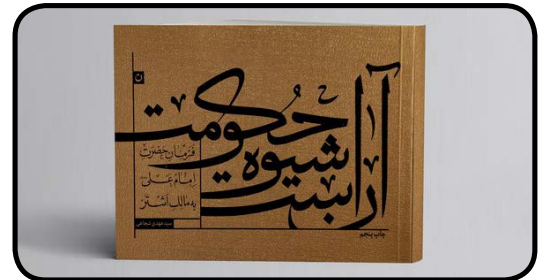 آن است
شیوه
حکومت
فرمان حضرت
امام علی
به مالک اشتر
سید مهدی شجاعی
چاپ پنجم